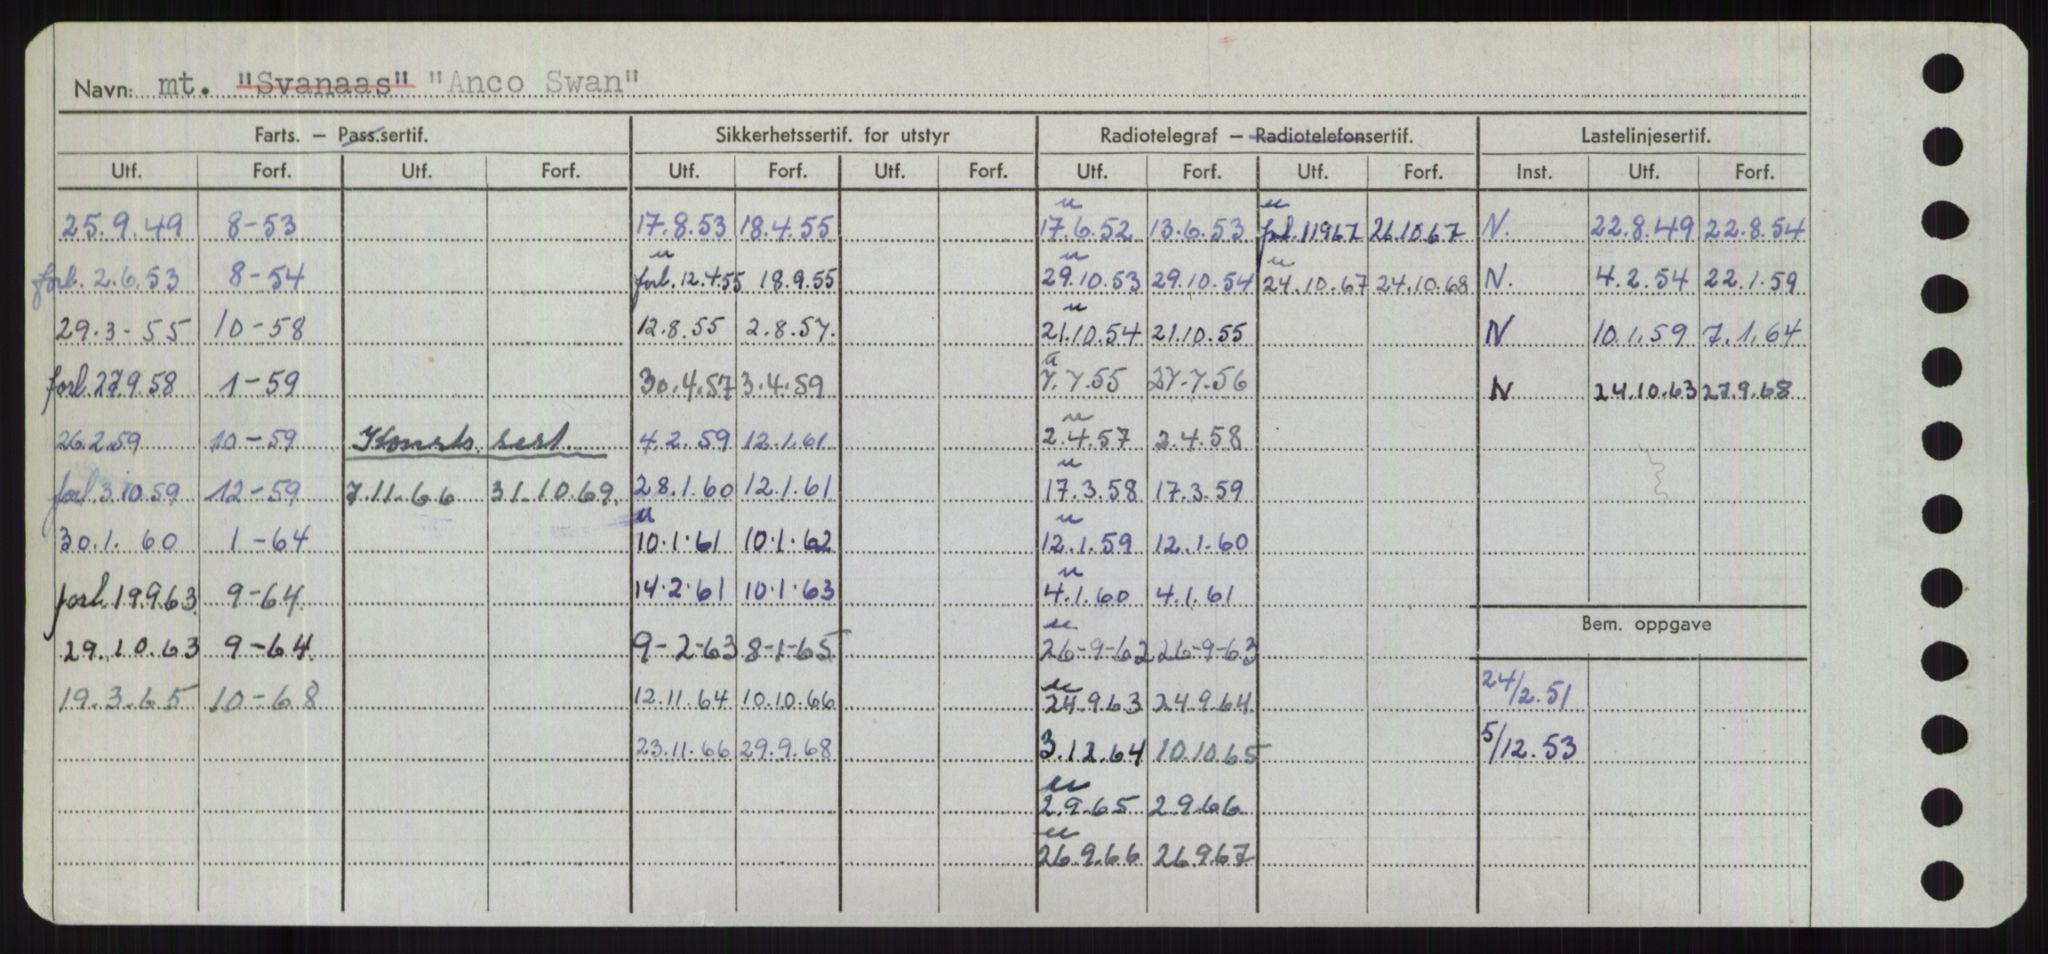 Navn: mt. "Svanaas" "Anco Swan"
Farts. — Pass.sertif. Sikkerhetssertif. for utstyr Radiotelegraf — Radiotelefonsertif. Lastelinjesertif.
Utf. Forf. Utf. Forf. Utf. Forf. Utf. Forf. Utf. Forf. Utf. Forf. Inst. Utf. Forf.
25.9.49 8-53 17.8.53 18.4.55 u 17.6.52 13.6.53 u forl. 11967 26.10.67 N. 22.8.49 22.8.54
forl. 2.6.53 8-54 u forl. 12.4.55 18.9.55 u 29.10.53 29.10.54 u 24.10.67 24.10.68 N. 4.2.54 22.1.59
29.3-55 10-58 12.8.55 2.8.57. u 21.10.54 21.10.55 N 10.1.59 7.1.64
forl. 27.9.58 1-59 30.4.57 3.4.59 u 7.7.55 27.7.56 N 24.10.63 27.9.68
26.2.59 10-59 Konstr. sert. 4.2.59 12.1.61 u 2.4.57 2.4.58
forl 3.10.59 12-59 7.11.66 31.10.69. 28.1.60 12.1.61 u 17.3.58 17.3.59
30.1.60 1-64 u 10.1.61 10.1.62 u 12.1.59 12.1.60
forl. 19.9.63 9-64 14.2.61 10.1.63 u 4.1.60 4.1.61
Bem. oppgave
29.10.63 9-64 9-2-63 8-1-65 u 26-9-62 26-9-63
19.3.65 10-68 12.11.64 10.10.66 u 24.9.63 24.9.64 24/2.51
23.11.66 29.9.68 3.12.64 10.10.65 5/12.53
u 2.9.65 2.9.66
u 26.9.66 26.9.67